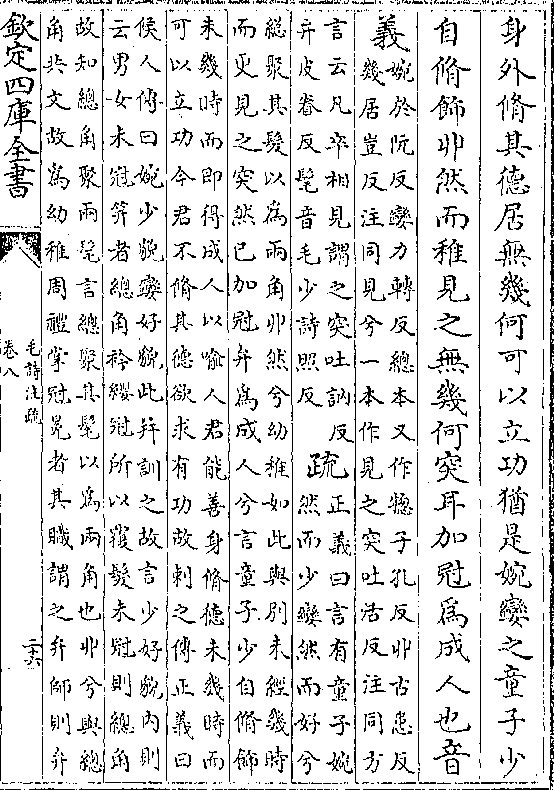 身外脩其德居無幾何可以立功猶是婉孌之童子少
自脩飾丱然而稚見之無幾何突耳加冠為成人也音
義
婉於阮反孌力轉反總本又作揔子孔反丱古患反
幾居豈反注同見兮一本作見之突吐活反注同方
言云凡卒相見謂之突吐訥反
弁皮眷反髦音毛少詩照反
疏
正義曰言有童子婉
然而少孌然而好兮
總聚其髮以為兩角丱然兮幼稚如此與別未經幾時
而更見之突然已加冠弁為成人兮言童子少自脩飾
未幾時而即得成人以喻人君能善身脩德未幾時而
可以立功今君不脩其德欲求有功故刺之傳正義曰
侯人傳曰婉少貌孌好貌此并訓之故言少好貌内則
云男女未冠笄者總角衿纓冠所以覆髮未冠則總角
故知總角聚兩髦言總聚其髦以為兩角也丱兮與總
角共文故為幼稚周禮掌冠冕者其職謂之弁師則弁
欽定四庫全書
毛詩注疏
卷八
二十六